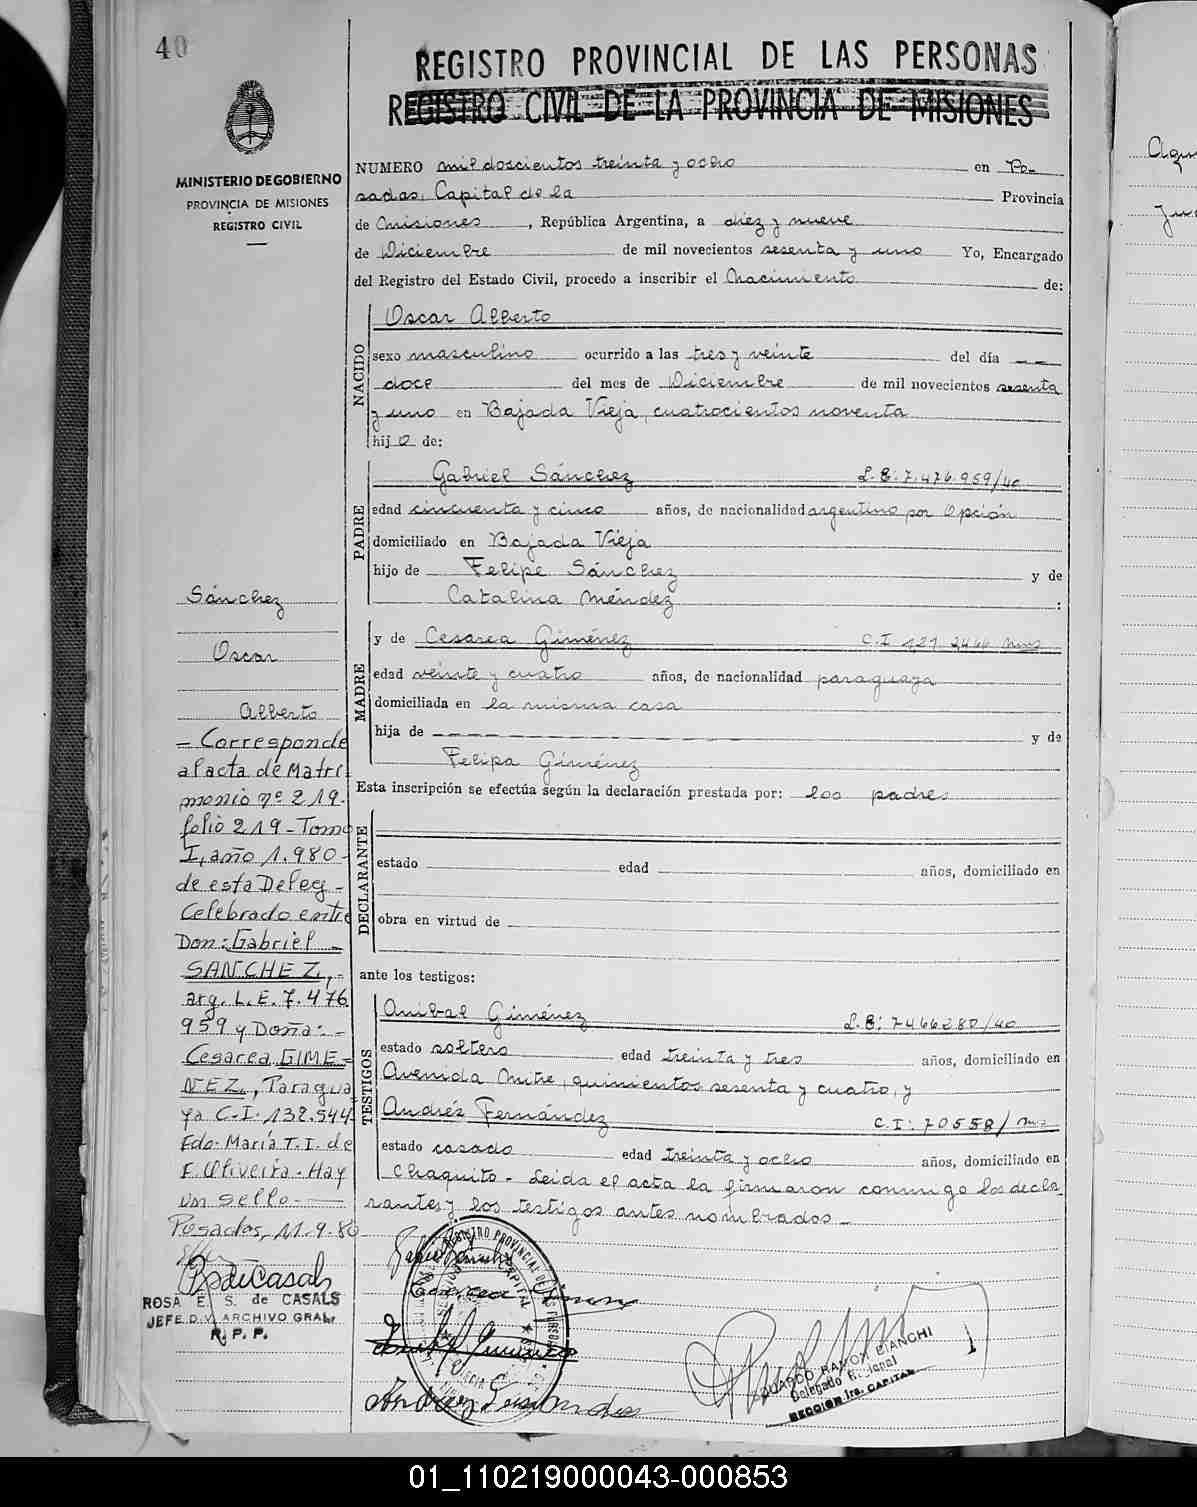 40
REGISTRO PROVINCIAL DE LAS PERSONAS
REGISTRO CIVIL DE LA PROVINCIA DE MISIONES
MINISTERIO DE GOBIERNO
PROVINCIA DE MISIONES
REGISTRO CIVIL
NUMERO mil doscientos treinta y ocho en Po-
sadas, Capital de la Provincia
de Misiones, República Argentina, a diez y nueve
de Diciembre de mil novecientos sesenta y uno Yo, Encargado
del Registro del Estado Civil, procedo a inscribir el Nacimiento de:
NACIDO
Oscar Alberto
sexo masculino ocurrido a las tres y veinte del día --
doce del mes de Diciembre de mil novecientos sesenta
y uno en Bajada Vieja, cuatrocientos noventa
hijo de:
PADRE
Gabriel Sánchez L.E. 7.476.959/40
edad cincuenta y cinco años, de nacionalidad argentino por Opción
domiciliado en Bajada Vieja
hijo de Felipe Sánchez y de
Catalina Méndez :
MADRE
y de Cesarea Giménez C.I
edad veinte y cuatro años, de nacionalidad paraguaya
domiciliada en la misma casa
hija de - - - - - - - - y de
Felipa Giménez
Esta inscripción se efectúa según la declaración prestada por: los padres
DECLARANTE
estado edad años, domiciliado en
obra en virtud de
ante los testigos:
TESTIGOS
Anibal Giménez L.E: 7466280/40
estado soltero edad treinta y tres años, domiciliado en
Avenida Mitre, quinientos sesenta y cuatro, y
Andrés Fernández C.I: 70558/Mnes
estado casado edad treinta y ocho años, domiciliado en
Chaquito - Leida el acta la firmaron conmigo los decla
rantes y los testigos antes nombrados -
Sánchez
Oscar
Alberto
- Corresponde
al acta de Matri
monio nº 219.
folio 219 - Tomo
I, año 1.980 -
de esta Deleg -
Celebrado entre
Don: Gabriel -
SANCHEZ, -
arg. L.E. 7.476
959 y Doña: -
Cesarea GIME=
NEZ, Paragua
ya C.I. 132.544
Fdo. María T. I. de
F. Oliveira - Hay
un sello -
Posadas, 11.9.80
ROSA E. S. de CASALS
JEFE DIV. ARCHIVO GRAL.
R. P. P.
EDUARDO RAMON BIANCHI
Delegado Regional
SECCION 1ra. CAPITAL
Agus
01_110219000043-000853